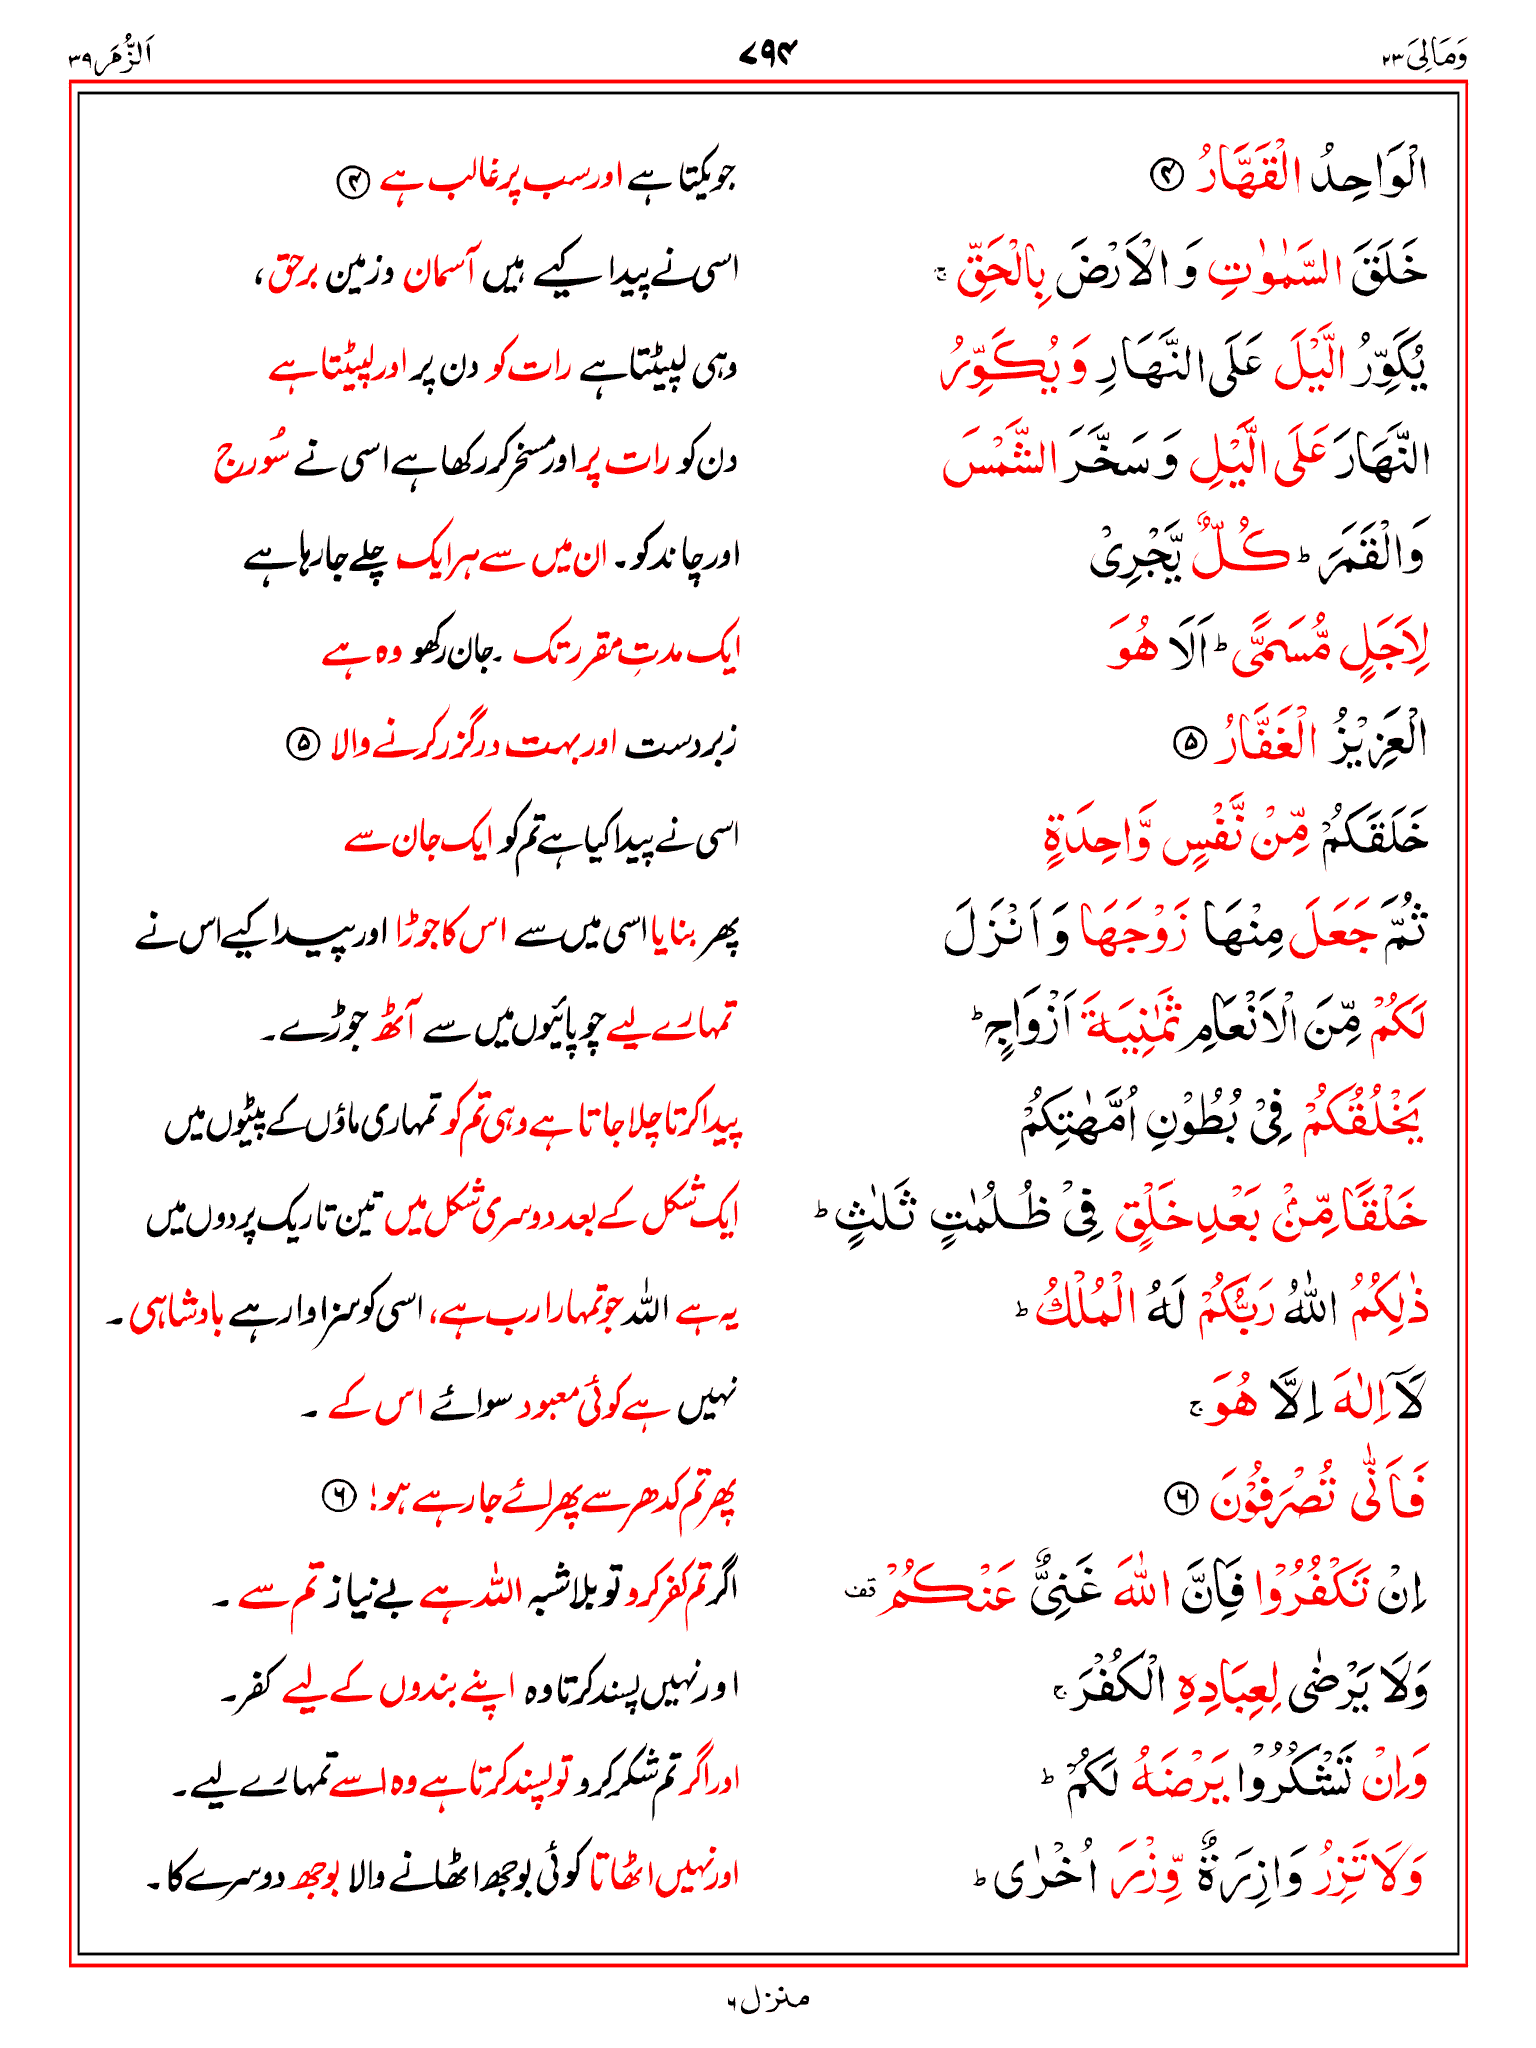 وَمَالِیَ ۲۳
۷۹۴
اَلزُّمَر ۳۹
الْوَاحِدُ الْقَهَّارُ ۴
جو یکتا ہے اور سب پر غالب ہے ۴
خَلَقَ السَّمٰوٰتِ وَ الْاَرْضَ بِالْحَقِّ ۚ
اسی نے پیدا کیے ہیں آسمان و زمین برحق،
یُكَوِّرُ الَّیْلَ عَلَی النَّهَارِ وَ یُكَوِّرُ
وہی لپیٹتا ہے رات کو دن پر اور لپیٹتا ہے
النَّهَارَ عَلَی الَّیْلِ وَ سَخَّرَ الشَّمْسَ
دن کو رات پر اور مسخر کر رکھا ہے اسی نے سُورج
وَالْقَمَرَ ؕ كُلٌّ یَّجْرِیْ
اور چاند کو۔ ان میں سے ہر ایک چلے جا رہا ہے
لِاَجَلٍ مُّسَمًّی ؕ اَلَا هُوَ
ایک مدتِ مقرر تک ۔ جان رکھو وہ ہے
الْعَزِیْزُ الْغَفَّارُ ۵
زبردست اور بہت درگزر کرنے والا ۵
خَلَقَكُمْ مِّنْ نَّفْسٍ وَّاحِدَةٍ
اسی نے پیدا کیا ہے تم کو ایک جان سے
ثُمَّ جَعَلَ مِنْهَا زَوْجَهَا وَ اَنْزَلَ
پھر بنایا اسی میں سے اس کا جوڑا اور پیدا کیے اس نے
لَكُمْ مِّنَ الْاَنْعَامِ ثَمٰنِیَةَ اَزْوَاجٍ ؕ
تمہارے لیے چوپائیوں میں سے آٹھ جوڑے۔
یَخْلُقُكُمْ فِیْ بُطُوْنِ اُمَّهٰتِكُمْ
پیدا کرتا چلا جاتا ہے وہی تم کو تمہاری ماؤں کے پیٹوں میں
خَلْقًا مِّنْۢ بَعْدِ خَلْقٍ فِیْ ظُلُمٰتٍ ثَلٰثٍ ؕ
ایک شکل کے بعد دوسری شکل میں تین تاریک پردوں میں
ذٰلِكُمُ اللّٰهُ رَبُّكُمْ لَهُ الْمُلْكُ ؕ
یہ ہے اللہ جو تمہارا رب ہے، اسی کو سزاوار ہے بادشاہی ۔
لَاۤ اِلٰهَ اِلَّا هُوَ ۚ
نہیں ہے کوئی معبود سوائے اس کے ۔
فَاَنّٰی تُصْرَفُوْنَ ۶
پھر تم کدھر سے پھرائے جا رہے ہو! ۶
اِنْ تَكْفُرُوْا فَاِنَّ اللّٰهَ غَنِیٌّ عَنْكُمْ قف
اگر تم کفر کرو تو بلاشبہ اللہ ہے بے نیاز تم سے ۔
وَلَا یَرْضٰی لِعِبَادِهِ الْكُفْرَ ۚ
اور نہیں پسند کرتا وہ اپنے بندوں کے لیے کفر۔
وَاِنْ تَشْكُرُوْا یَرْضَهُ لَكُمْ ؕ
اور اگر تم شکر کرو تو پسند کرتا ہے وہ اسے تمہارے لیے۔
وَلَا تَزِرُ وَازِرَةٌ وِّزْرَ اُخْرٰی ؕ
اور نہیں اٹھاتا کوئی بوجھ اٹھانے والا بوجھ دوسرے کا۔
منزل ۶